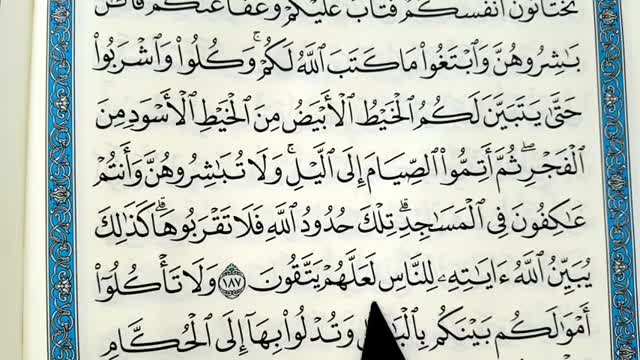 تَخْتَانُونَ أَنفُسَكُمْ فَتَابَ عَلَيْكُمْ وَعَفَا عَنكُمْ فَٱلْـَٰٔنَ
بَٰشِرُوهُنَّ وَٱبْتَغُوا۟ مَا كَتَبَ ٱللَّهُ لَكُمْ ۚ وَكُلُوا۟ وَٱشْرَبُوا۟
حَتَّىٰ يَتَبَيَّنَ لَكُمُ ٱلْخَيْطُ ٱلْأَبْيَضُ مِنَ ٱلْخَيْطِ ٱلْأَسْوَدِ مِنَ
ٱلْفَجْرِ ۖ ثُمَّ أَتِمُّوا۟ ٱلصِّيَامَ إِلَى ٱلَّيْلِ ۚ وَلَا تُبَٰشِرُوهُنَّ وَأَنتُمْ
عَٰكِفُونَ فِى ٱلْمَسَٰجِدِ ۗ تِلْكَ حُدُودُ ٱللَّهِ فَلَا تَقْرَبُوهَا ۗ كَذَٰلِكَ
يُبَيِّنُ ٱللَّهُ ءَايَٰتِهِۦ لِلنَّاسِ لَعَلَّهُمْ يَتَّقُونَ ١٨٧ وَلَا تَأْكُلُوٓا۟
أَمْوَٰلَكُم بَيْنَكُم بِٱلْبَٰطِلِ وَتُدْلُوا۟ بِهَآ إِلَى ٱلْحُكَّامِ